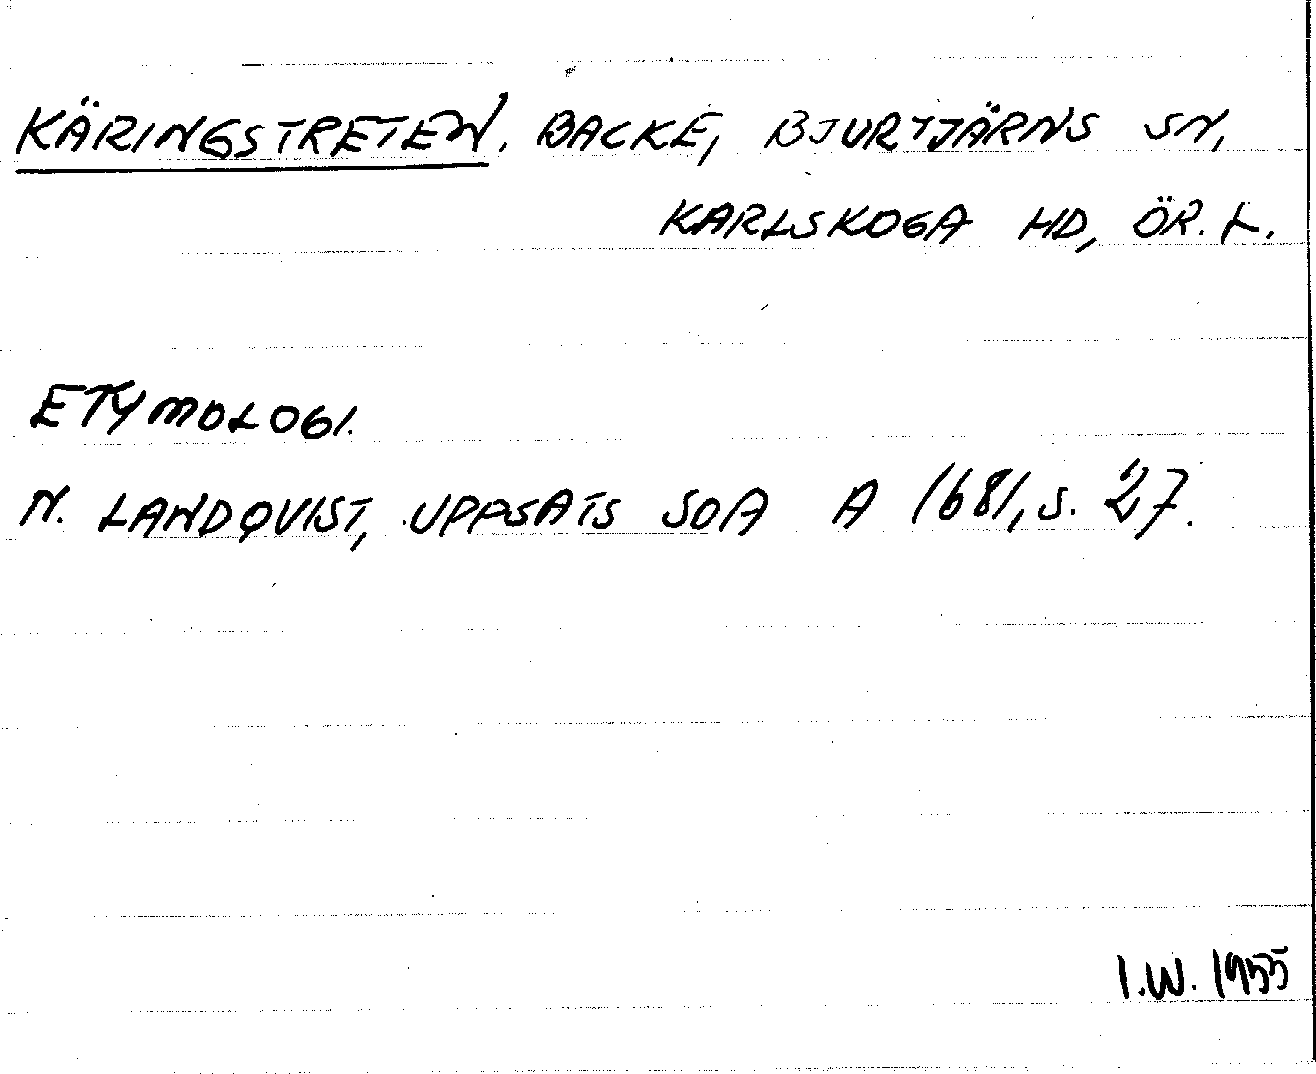 KÄRINGSTRETEN. BACKE, BJURTJÄRNS SN,
KARLSKOGA HD, ÖR. L.
ETYMOLOGI.
N. LANDQVIST, UPPSATS SOA A 1681, S. 27.
I.W. 1955